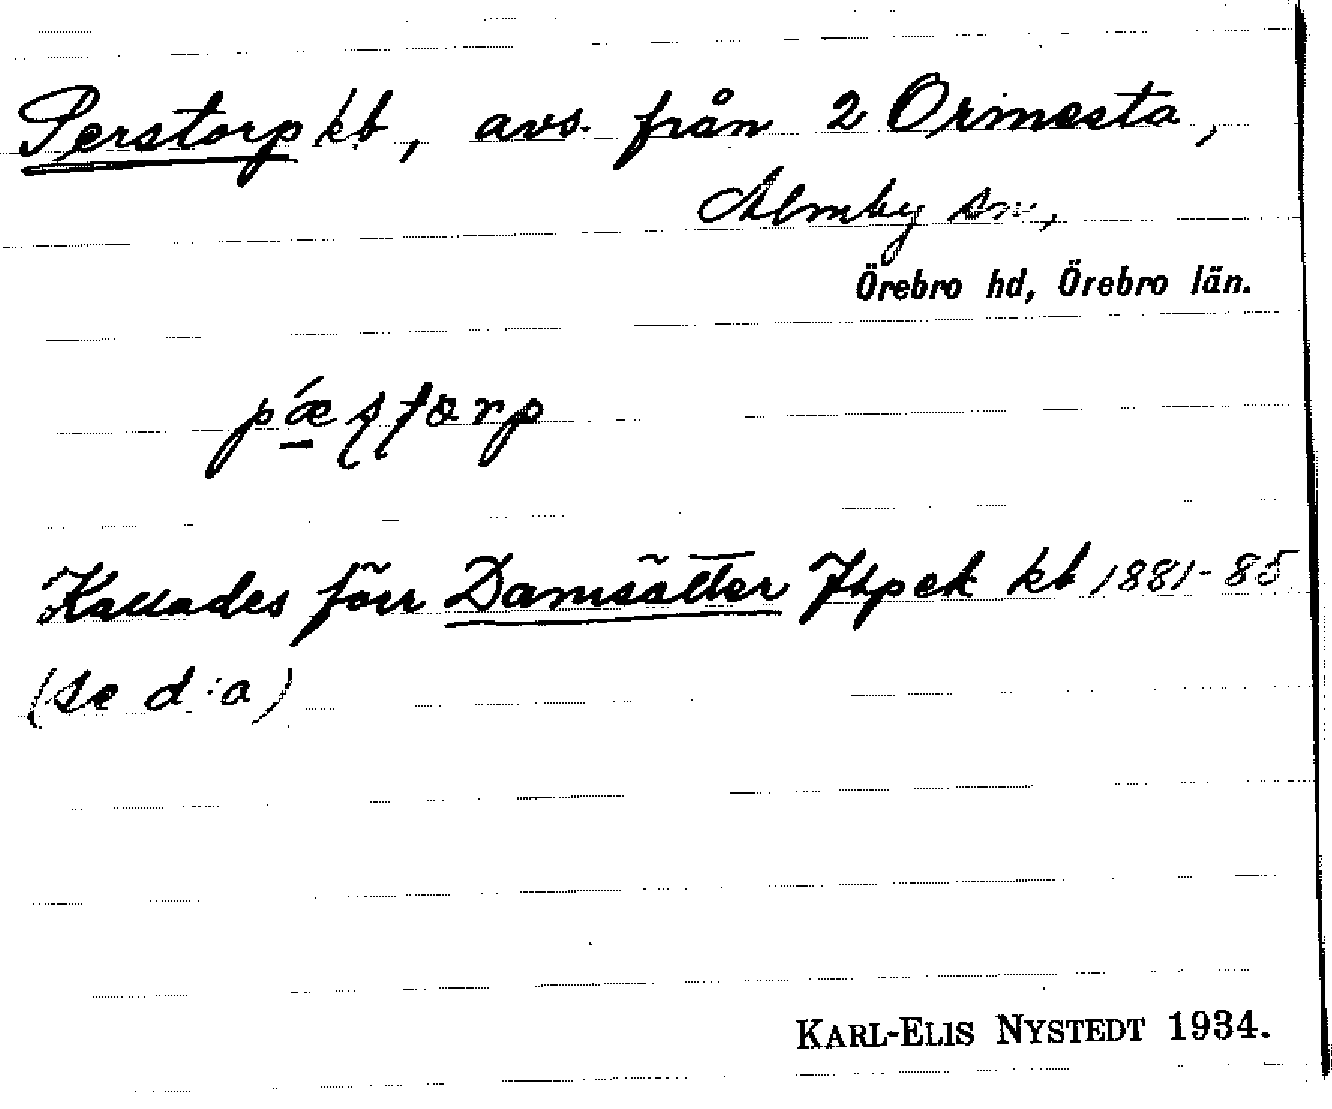 Perstorp kb, avs. från 2 Ormesta,
Almby sn,
Örebro hd, Örebro län.
pǽʂʈɒrp
Kallades förr Damsätter Jbpek kb 1881-85
(se d:a)
KARL-ELIS NYSTEDT 1934.